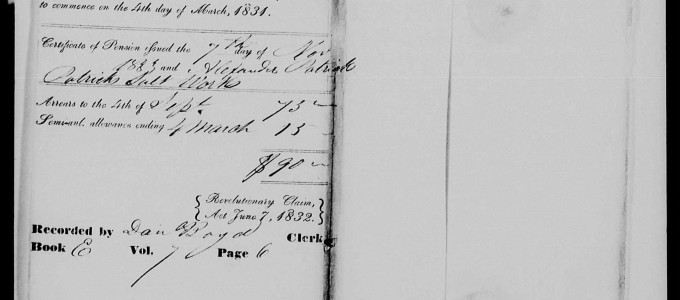 to commence on the 4th day of March, 1831.
Certificate of Pension issued the 7th day of Nov
1833 and Alexander Patrick
Patricks Salt Work
Arrears to the 4th of Sept. 75
Semi-anl. allowance ending 4 March 15
$90
Revolutionary Claim,
Act June 7, 1832.
Recorded by Dan Boyd Clerk
Book E Vol. 7 Page 6